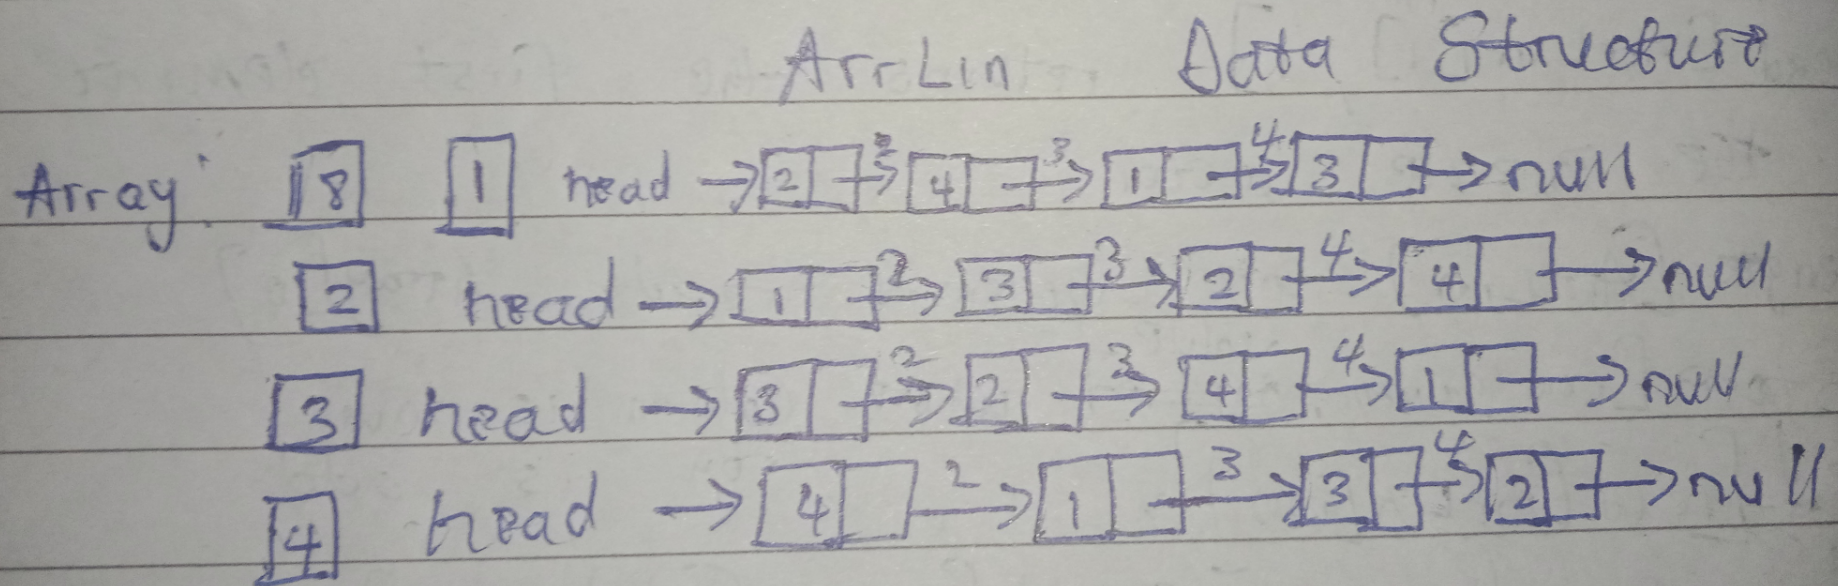 ArrLin Data Structure
Array: 18 1 head → 2 2→ 4 3→ 1 4→ 3 → null
2 head → 1 2→ 3 3→ 2 4→ 4 → null
3 head → 3 2→ 2 3→ 4 4→ 1 → null
4 head → 4 2→ 1 3→ 3 4→ 2 → null